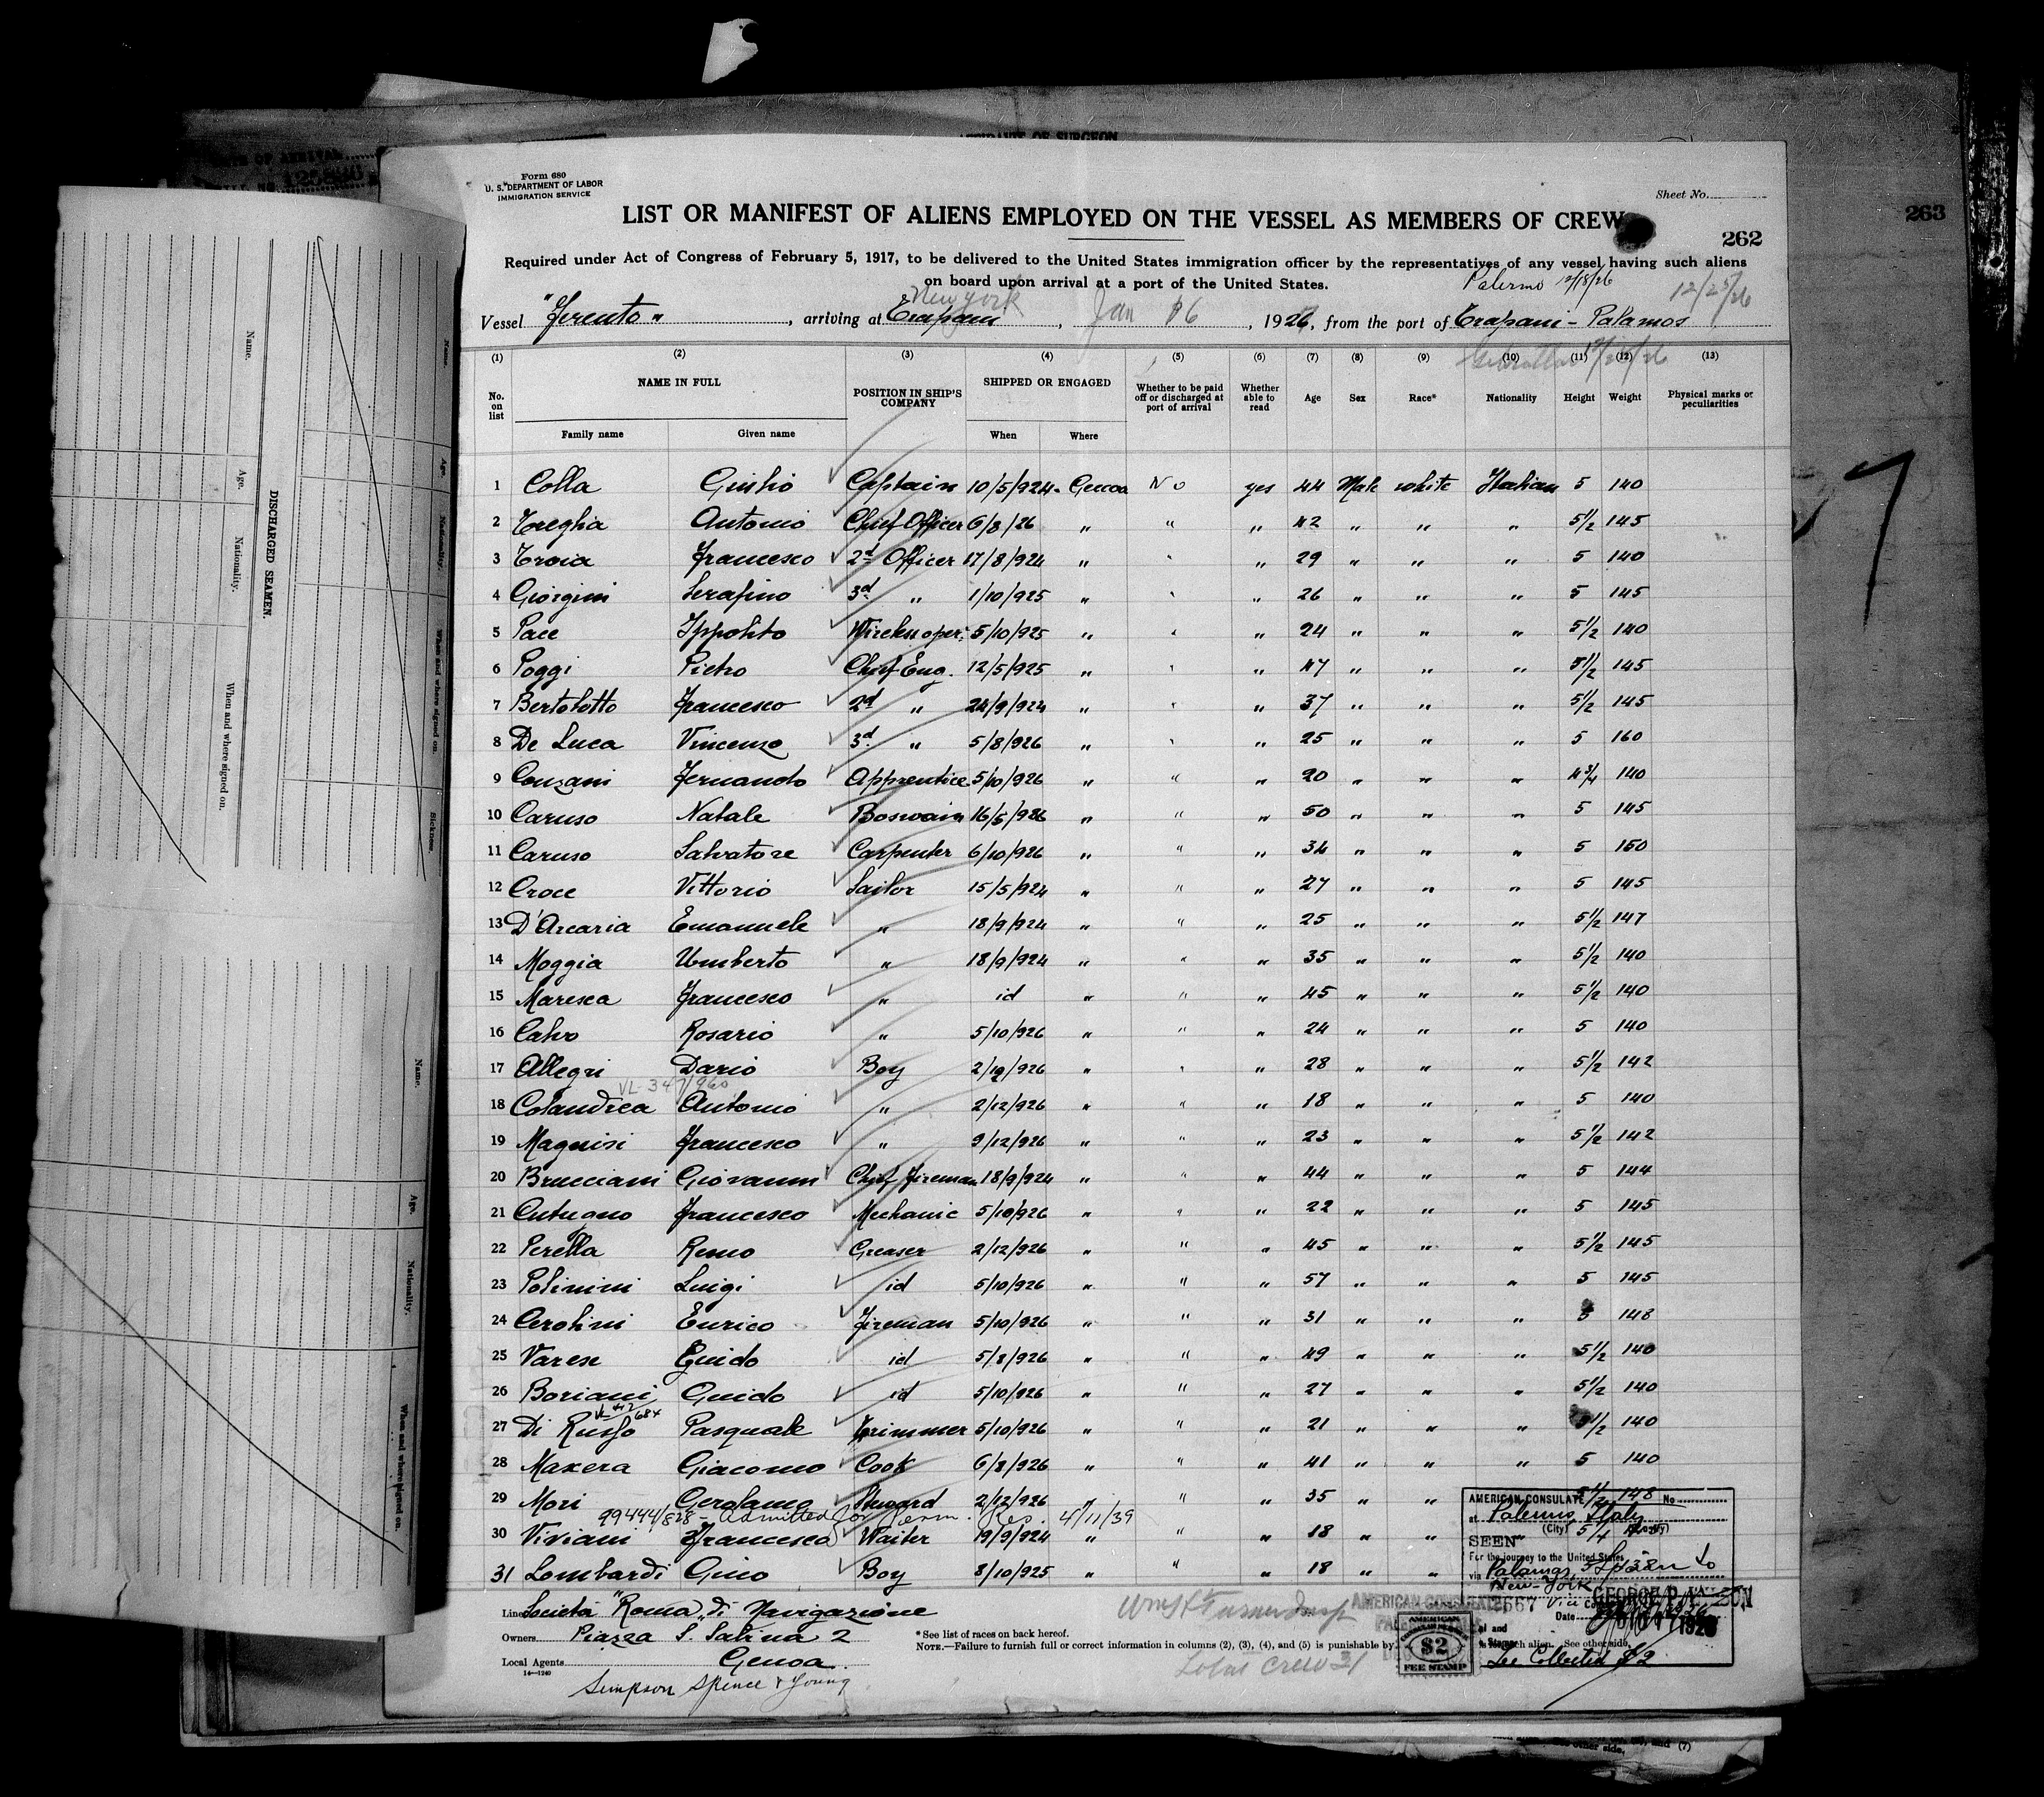 AFFIDAVIT OF SURGEON
Form 680
U. S. DEPARTMENT OF LABOR
IMMIGRATION SERVICE
Sheet No.
263
LIST OR MANIFEST OF ALIENS EMPLOYED ON THE VESSEL AS MEMBERS OF CREW
262
Required under Act of Congress of February 5, 1917, to be delivered to the United States immigration officer by the representatives of any vessel having such aliens
on board upon arrival at a port of the United States.
Palermo 12/18/26
12/25/26
New York
Vessel "Ferento", arriving at Trapani, Jan 6, 1926, from the port of Trapani - Palamos
Gibraltar 12/26/26
(1) (2) (3) (4) (5) (6) (7) (8) (9) (10) (11) (12) (13)
No. on list NAME IN FULL Family name Given name POSITION IN SHIP'S COMPANY SHIPPED OR ENGAGED When Where Whether to be paid off or discharged at port of arrival Whether able to read Age Sex Race* Nationality Height Weight Physical marks or peculiarities
1 Colla Giulio Captain 10/5/924 Genoa No yes 44 Male white Italian 5 140
2 Treglia Antonio Chief Officer 6/8/26 " " " 42 " " " 5 1/2 145
3 Troia Francesco 2d Officer 17/8/924 " " " 29 " " " 5 140
4 Giorgini Serafino 3d " 1/10/925 " " " 26 " " " 5 145
5 Pace Ippolito Wireless oper. 5/10/925 " " " 24 " " " 5 1/2 140
6 Poggi Pietro Chief Eng. 12/5/925 " " " 47 " " " 5 1/2 145
7 Bertolotto Francesco 2d " 24/9/924 " " " 37 " " " 5 1/2 145
8 De Luca Vincenzo 3d " 5/8/926 " " " 25 " " " 5 160
9 Conzani Fernando Apprentice 5/10/926 " " " 20 " " " 4 3/4 140
10 Caruso Natale Boswain 16/5/926 " " " 50 " " " 5 145
11 Caruso Salvatore Carpenter 6/10/926 " " " 34 " " " 5 150
12 Croce Vittorio Sailor 15/5/924 " " " 27 " " " 5 145
13 D'Arcaria Emanuele " 18/9/924 " " " 25 " " " 5 1/2 147
14 Moggia Umberto " 18/9/924 " " " 35 " " " 5 1/2 140
15 Maresca Francesco " id " " " 45 " " " 5 1/2 140
16 Calvo Rosario " 5/10/926 " " " 24 " " " 5 140
17 Allegri Dario Boy 2/12/926 " " " 28 " " " 5 1/2 142
VL 347/960
18 Colandrea Antonio " 2/12/926 " " " 18 " " " 5 140
19 Magnisi Francesco " 9/12/926 " " " 23 " " " 5 1/2 142
20 Brucciani Giovanni Chief Fireman 18/9/924 " " " 44 " " " 5 144
21 Cutugno Francesco Mechanic 5/10/926 " " " 22 " " " 5 145
22 Perella Remo Greaser 2/12/926 " " " 45 " " " 5 1/2 145
23 Polimini Luigi id 5/10/926 " " " 57 " " " 5 145
24 Cerolini Enrico Fireman 5/10/926 " " " 31 " " " 5 148
25 Varese Guido id 5/8/926 " " " 49 " " " 5 1/2 140
26 Boriani Guido id 5/10/926 " " " 27 " " " 5 1/2 140
27 Di Russo Pasquale Trimmer 5/10/926 " " " 21 " " " 5 1/2 140
28 Maxera Giacomo Cook 6/8/926 " " " 41 " " " 5 140
29 Mori Gerolamo Steward 2/12/926 " " " 35 " " 5 1/2 148
99444/828 - Admitted for Perm. Res. 4/11/39
30 Viviani Francesco Waiter 19/9/924 " " " 18 " "
31 Lombardi Gino Boy 8/10/925 " " " 18 " "
AMERICAN CONSULATE No
at Palermo, Italy
(City)
SEEN
For the journey to the United States
via Palamos, Spain to
New-York
Date
Fee Collected $2
Line Società "Roma" di Navigazione
Owners Piazza S. Sabina 2
Local Agents Genoa
14—1240
Simpson Spence & Young
*See list of races on back hereof.
NOTE.—Failure to furnish full or correct information in columns (2), (3), (4), and (5) is punishable by
See other side.
Total Crew 31
AMERICAN
$2
FEE STAMP
DISCHARGED SEAMEN.
Name. Age. Nationality. When and where signed on.
Name. Age. Nationality. When and where signed on. Sickness.
Name. Age. Nationality. When and where signed on.